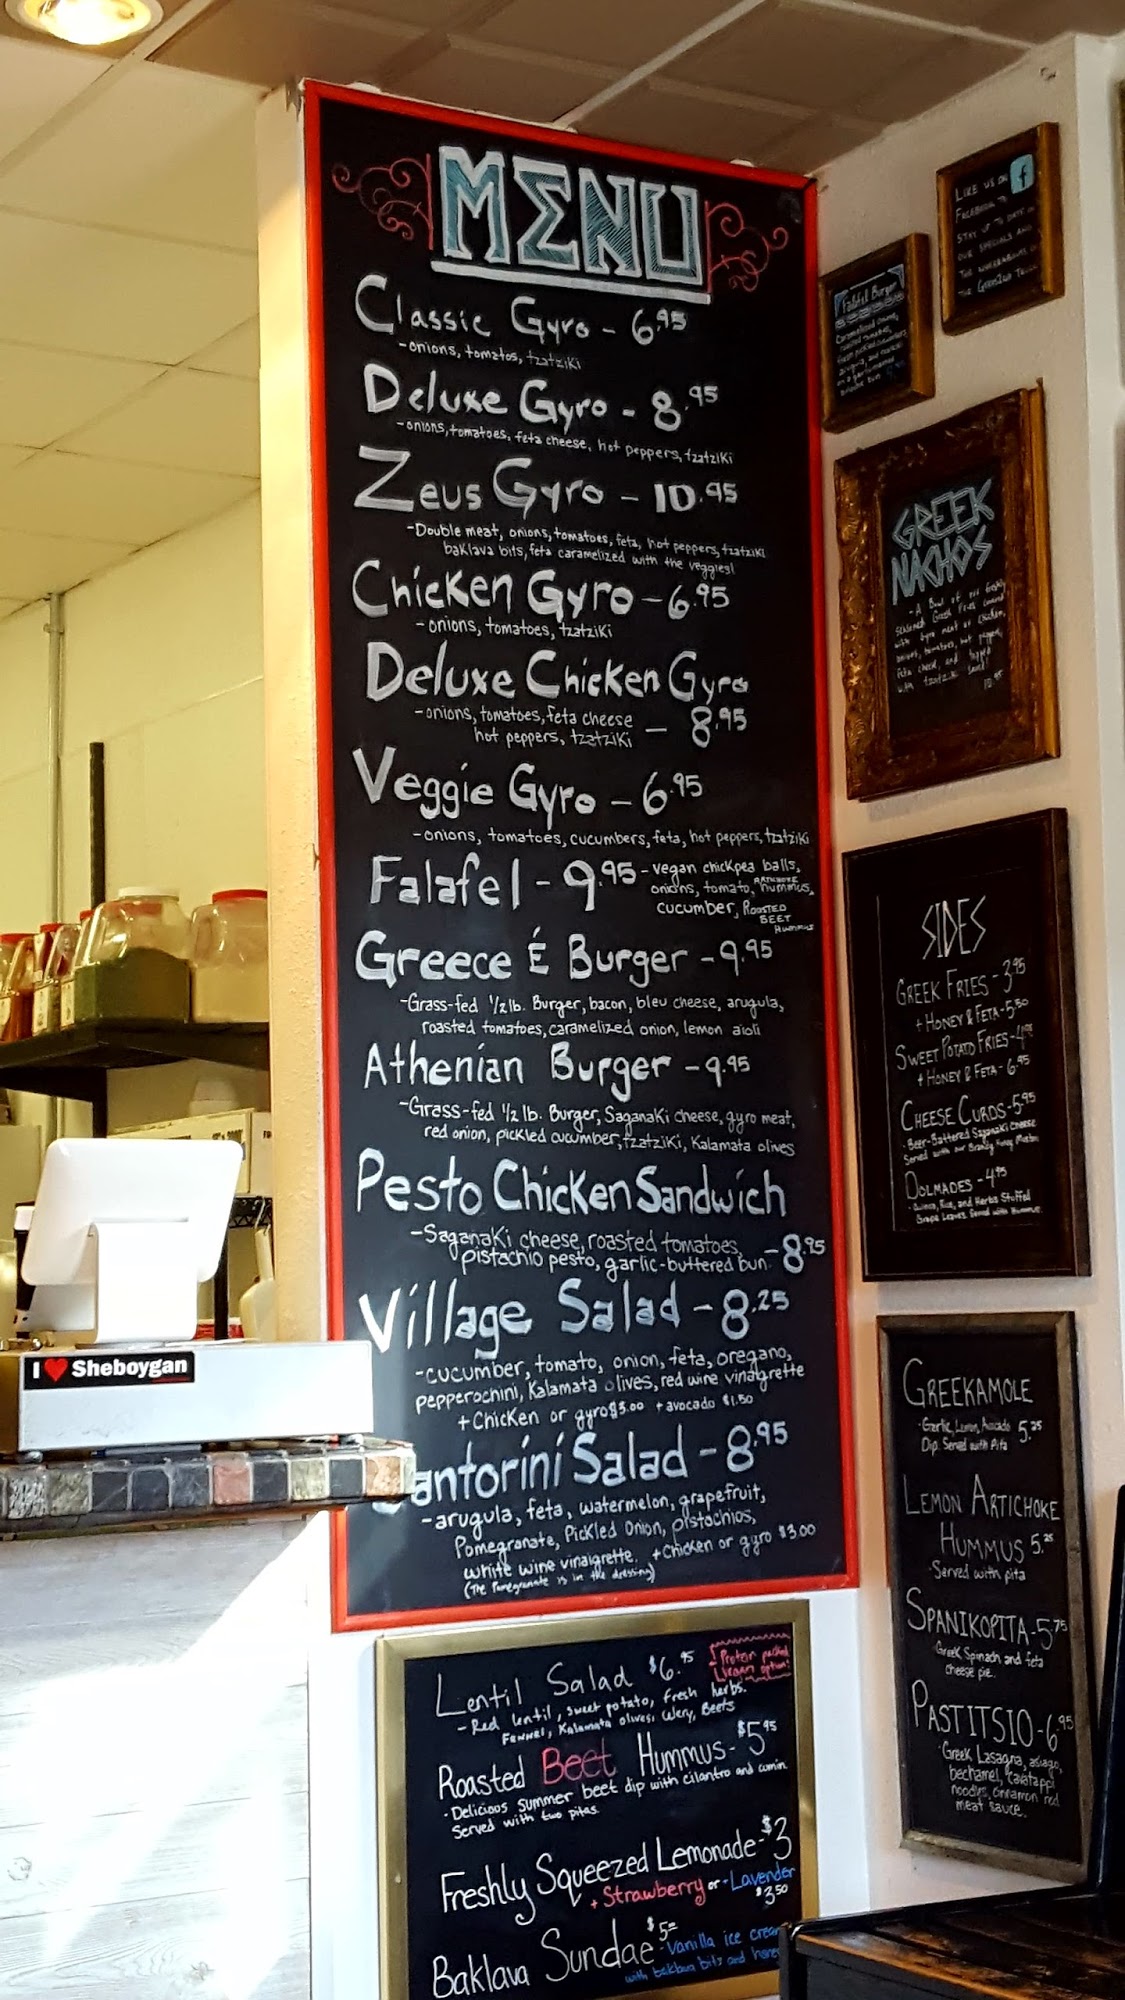 MENU
Classic Gyro - 6.95
-onions, tomatos, tzatziki
Deluxe Gyro - 8.95
-onions, tomatoes, feta cheese, hot peppers, tzatziki
Zeus Gyro - 10.95
-Double meat, onions, tomatoes, feta, hot peppers, tzatziki
baklava bits, feta caramelized with the veggies!
Chicken Gyro - 6.95
- onions, tomatoes, tzatziki
Deluxe Chicken Gyro
-onions, tomatoes, feta cheese
hot peppers, tzatziki — 8.95
Veggie Gyro - 6.95
-onions, tomatoes, cucumbers, feta, hot peppers, tzatziki
Falafel - 9.95 - vegan chickpea balls,
onions, tomato, ARTICHOKE hummus,
cucumber, ROASTED
BEET
HUMMUS
Greece É Burger - 9.95
-Grass-fed 1/2 lb. Burger, bacon, bleu cheese, arugula,
roasted tomatoes, caramelized onion, lemon aioli
Athenian Burger - 9.95
-Grass-fed 1/2 lb. Burger, Saganaki cheese, gyro meat,
red onion, pickled cucumber, tzatziki, Kalamata olives
Pesto Chicken Sandwich
-Saganaki cheese, roasted tomatoes,
pistachio pesto, garlic-buttered bun. - 8.95
Village Salad - 8.25
-cucumber, tomato, onion, feta, oregano,
pepperochini, Kalamata olives, red wine vinaigrette
+Chicken or gyro $3.00 +avocado $1.50
antorini Salad - 8.95
-arugula, feta, watermelon, grapefruit,
Pomegranate, Pickled Onion, pistachios,
white wine vinaigrette. +Chicken or gyro $3.00
(The Pomegranate is in the dressing)
Lentil Salad $6.95
Protein packed
Vegan option!
- Red lentil, sweet potato, fresh herbs.
FENNEL, Kalamata olives, celery, Beets
Roasted Beet Hummus - $5.95
-Delicious summer beet dip with cilantro and cumin
Served with two pitas.
Freshly Squeezed Lemonade - $3
+ Strawberry or - Lavender
$3.50
Baklava Sundae $5
-Vanilla ice cream
with baklava bits and honey
LIKE US ON f
FACEBOOK TO
STAY UP TO DATE ON
OUR SPECIALS AND
THE WHEREABOUTS OF
THE
Falafel Burger
Caramelized onions,
roasted tomatoes,
fresh pickled cucumbers,
arugula, and
on a
GREEK
NACHOS
- A Bowl of our freshly
seasoned Greek Fries covered
with Gyro meat or chicken,
onions, tomatoes, hot peppers,
feta cheese, and topped
with tzatziki sauce!
10.95
SIDES
GREEK FRIES - 3.95
+ HONEY & FETA - 5.50
SWEET POTATO FRIES - 4.95
+ HONEY & FETA - 6.95
CHEESE CURDS - 5.95
- Beer-Battered Saganaki Cheese
Served with our Brandy Honey Mustard
DOLMADES - 4.95
- Quinoa, Rice, and Herbs Stuffed
Grape Leaves. Served with Hummus.
GREEKAMOLE
-Garlic, Lemon, Avocado 5.25
Dip. Served with Pita
LEMON ARTICHOKE
HUMMUS 5.25
-Served with pita
SPANIKOPITA - 5.75
Greek Spinach and feta
cheese pie.
PASTITSIO - 6.95
-Greek Lasagna, asiago,
bechamel, cavatappi
noodles, cinnamon red
meat sauce.
I ♥ Sheboygan